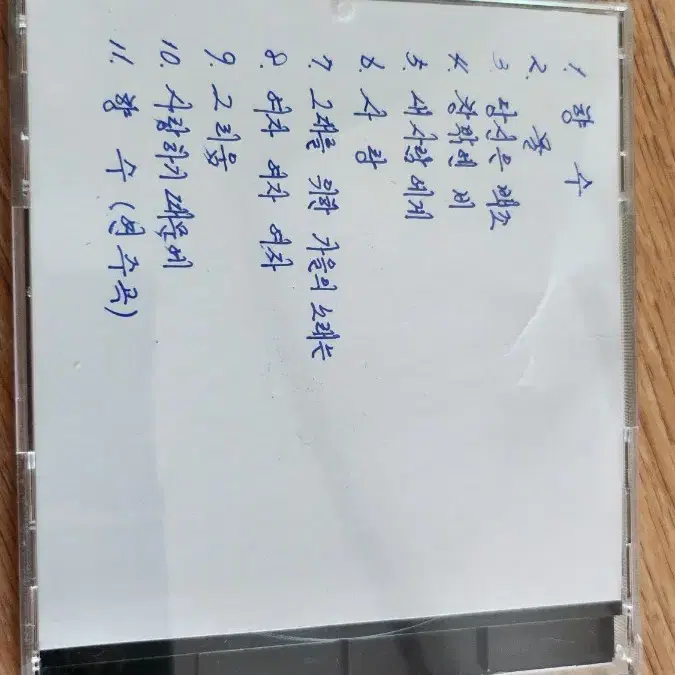 1. 향 수
2. 꿈
3. 당신은 째즈
4. 창밖에 비
5. 새 사람에게
6. 사 랑
7. 그대를 위한 가을의 노래는
8. 여자 여자 여자
9. 그리움
10. 사랑하기 때문에
11. 향 수 (연주곡)